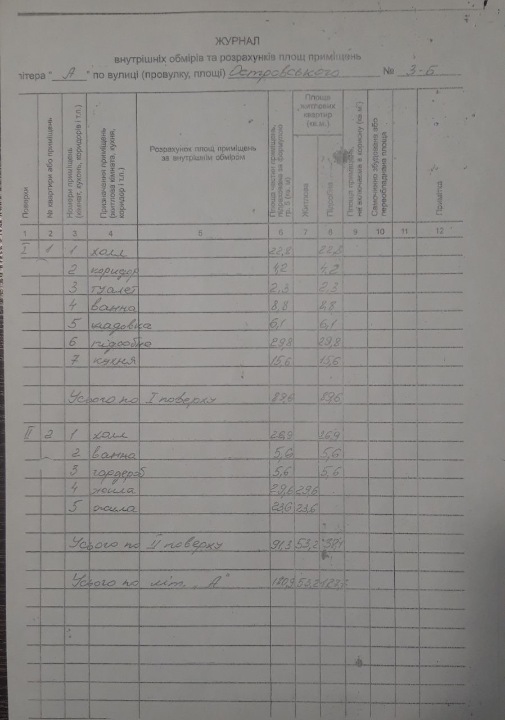 ЖУРНАЛ
внутрішніх обмірів та розрахунків площ приміщень
літера " А " по вулиці (провулку, площі) Островського № 3-Б
Поверхи
№ квартири або приміщень
Номери приміщень (кімнат, кухонь, коридорів і т.п.)
Призначення приміщень (житлова кімната, кухня, коридор і т.п.)
Розрахунок площ приміщень за внутрішнім обміром
Площа житлових квартир (кв.м.)
Житлова
Самочинно збудована або переобладнана площа
Примітка
1 2 3 4 5 6 7 8 9 10 11 12
1 1 холл 22,8
2 коридор 4,2 4,2
3 туалет 2,3 2,3
4 ванна 8,8 8,8
5 кладовка 6,1 6,1
6 підсобна 29,8 29,8
7 кухня 15,6 15,6
Усього по І поверху 89,6 89,6
ІІ 2 1 холл 26,9 26,9
2 ванна 5,6 5,6
3 гардероб 5,6 5,6
4 жила 29,6 29,6
5 жила 23,6 23,6
Усього по ІІ поверху 91,3 53,2
Усього по літ. „А"